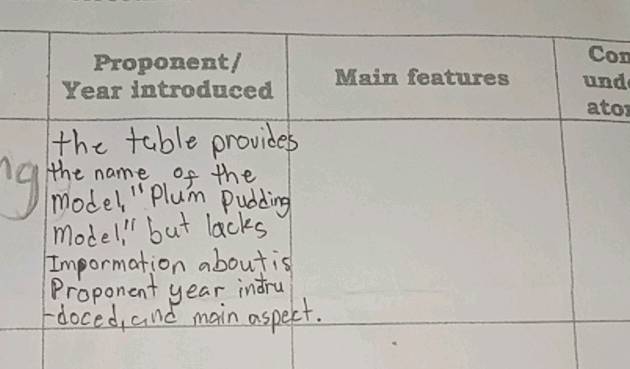 Proponent/
Year introduced
Main features
Con
und
ator
ng
the table provides
the name of the
model, "Plum Pudding
Model," but lacks
Impormation about is
Proponent year intru
-doced, and main aspect.